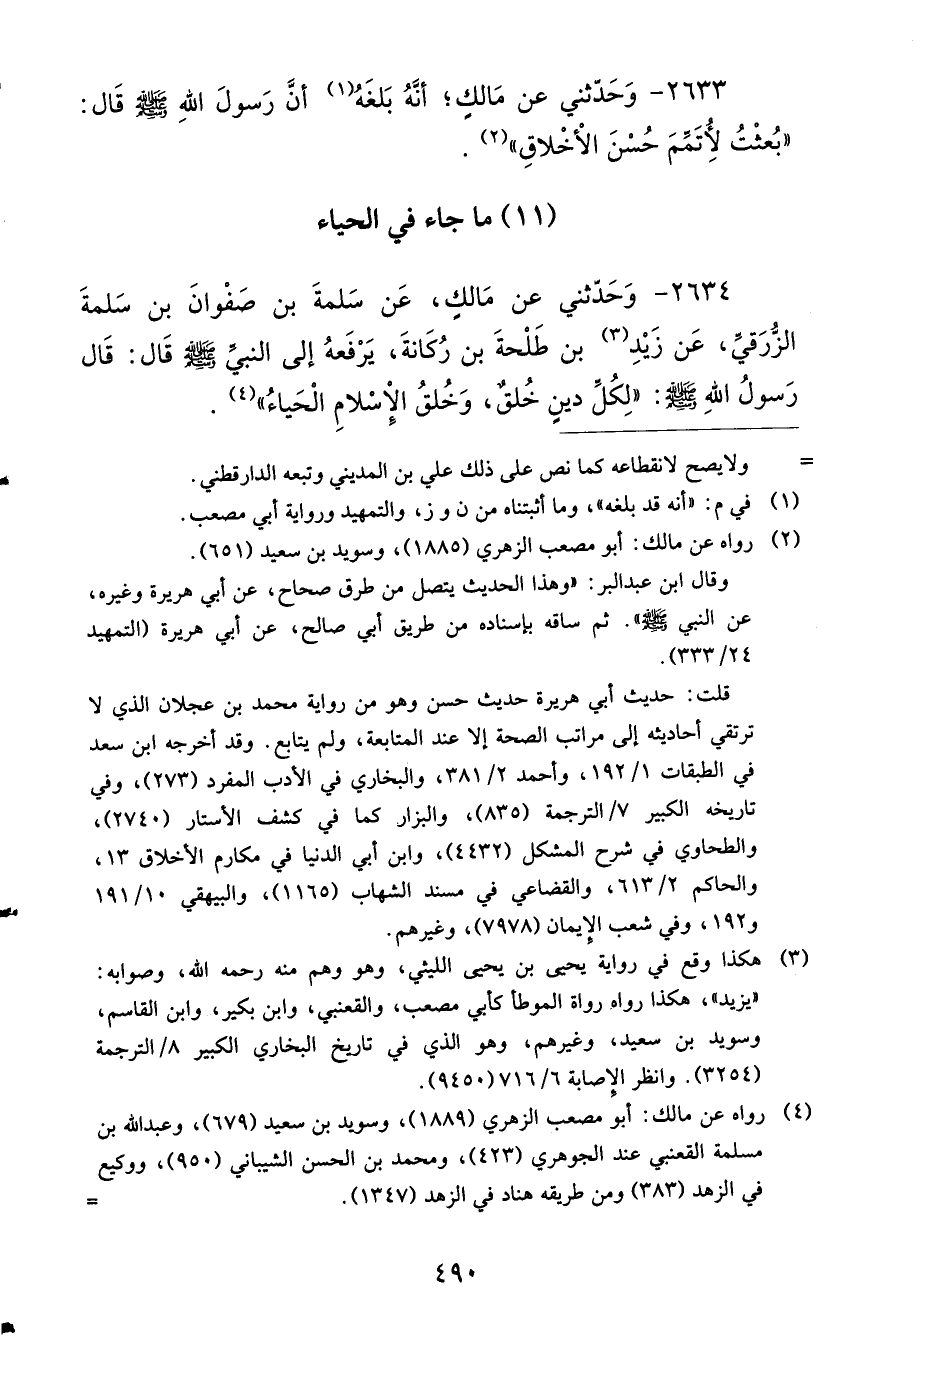 ٢٦٣٣- وَحَدّثني عن مَالكٍ؛ أنَّهُ بَلغَهُ(١) أنَّ رَسولَ اللهِ ﷺ قَال:
«بُعثْتُ لِأُتَمِّمَ حُسْنَ الْأخْلاقِ»(٢).
(١١) ما جاء في الحياء
٢٦٣٤- وَحَدّثني عن مَالكٍ، عَن سَلمةَ بن صَفْوانَ بن سَلمةَ
الزُّرَقيِّ، عَن زَيْدِ(٣) بن طَلْحةَ بن رُكَانةَ، يَرْفَعهُ إلى النبيِّ ﷺ قَال: قَال
رَسولُ اللهِ ﷺ: «لِكُلِّ دينٍ خُلقٌ، وَخُلقُ الْإسْلامِ الْحَياءُ»(٤).
= ولايصح لانقطاعه كما نص على ذلك علي بن المديني وتبعه الدارقطني.
(١) في م: «أنه قد بلغه»، وما أثبتناه من ن و ز، والتمهيد ورواية أبي مصعب.
(٢) رواه عن مالك: أبو مصعب الزهري (١٨٨٥)، وسويد بن سعيد (٦٥١).
وقال ابن عبدالبر: «وهذا الحديث يتصل من طرق صحاح، عن أبي هريرة وغيره،
عن النبي ﷺ». ثم ساقه بإسناده من طريق أبي صالح، عن أبي هريرة (التمهيد
٢٤/ ٣٣٣).
قلت: حديث أبي هريرة حديث حسن وهو من رواية محمد بن عجلان الذي لا
ترتقي أحاديثه إلى مراتب الصحة إلا عند المتابعة، ولم يتابع. وقد أخرجه ابن سعد
في الطبقات ١/ ١٩٢، وأحمد ٢/ ٣٨١، والبخاري في الأدب المفرد (٢٧٣)، وفي
تاريخه الكبير ٧/ الترجمة (٨٣٥)، والبزار كما في كشف الأستار (٢٧٤٠)،
والطحاوي في شرح المشكل (٤٤٣٢)، وابن أبي الدنيا في مكارم الأخلاق ١٣،
والحاكم ٢/ ٦١٣، والقضاعي في مسند الشهاب (١١٦٥)، والبيهقي ١٠/ ١٩١
و١٩٢، وفي شعب الإيمان (٧٩٧٨)، وغيرهم.
(٣) هكذا وقع في رواية يحيى بن يحيى الليثي، وهو وهم منه رحمه الله، وصوابه:
«يزيد»، هكذا رواه رواة الموطأ كأبي مصعب، والقعنبي، وابن بكير، وابن القاسم،
وسويد بن سعيد، وغيرهم، وهو الذي في تاريخ البخاري الكبير ٨/ الترجمة
(٣٢٥٤). وانظر الإصابة ٦/ ٧١٦ (٩٤٥٠).
(٤) رواه عن مالك: أبو مصعب الزهري (١٨٨٩)، وسويد بن سعيد (٦٧٩)، وعبدالله بن
مسلمة القعنبي عند الجوهري (٤٢٣)، ومحمد بن الحسن الشيباني (٩٥٠)، ووكيع
في الزهد (٣٨٣) ومن طريقه هناد في الزهد (١٣٤٧). =
٤٩٠